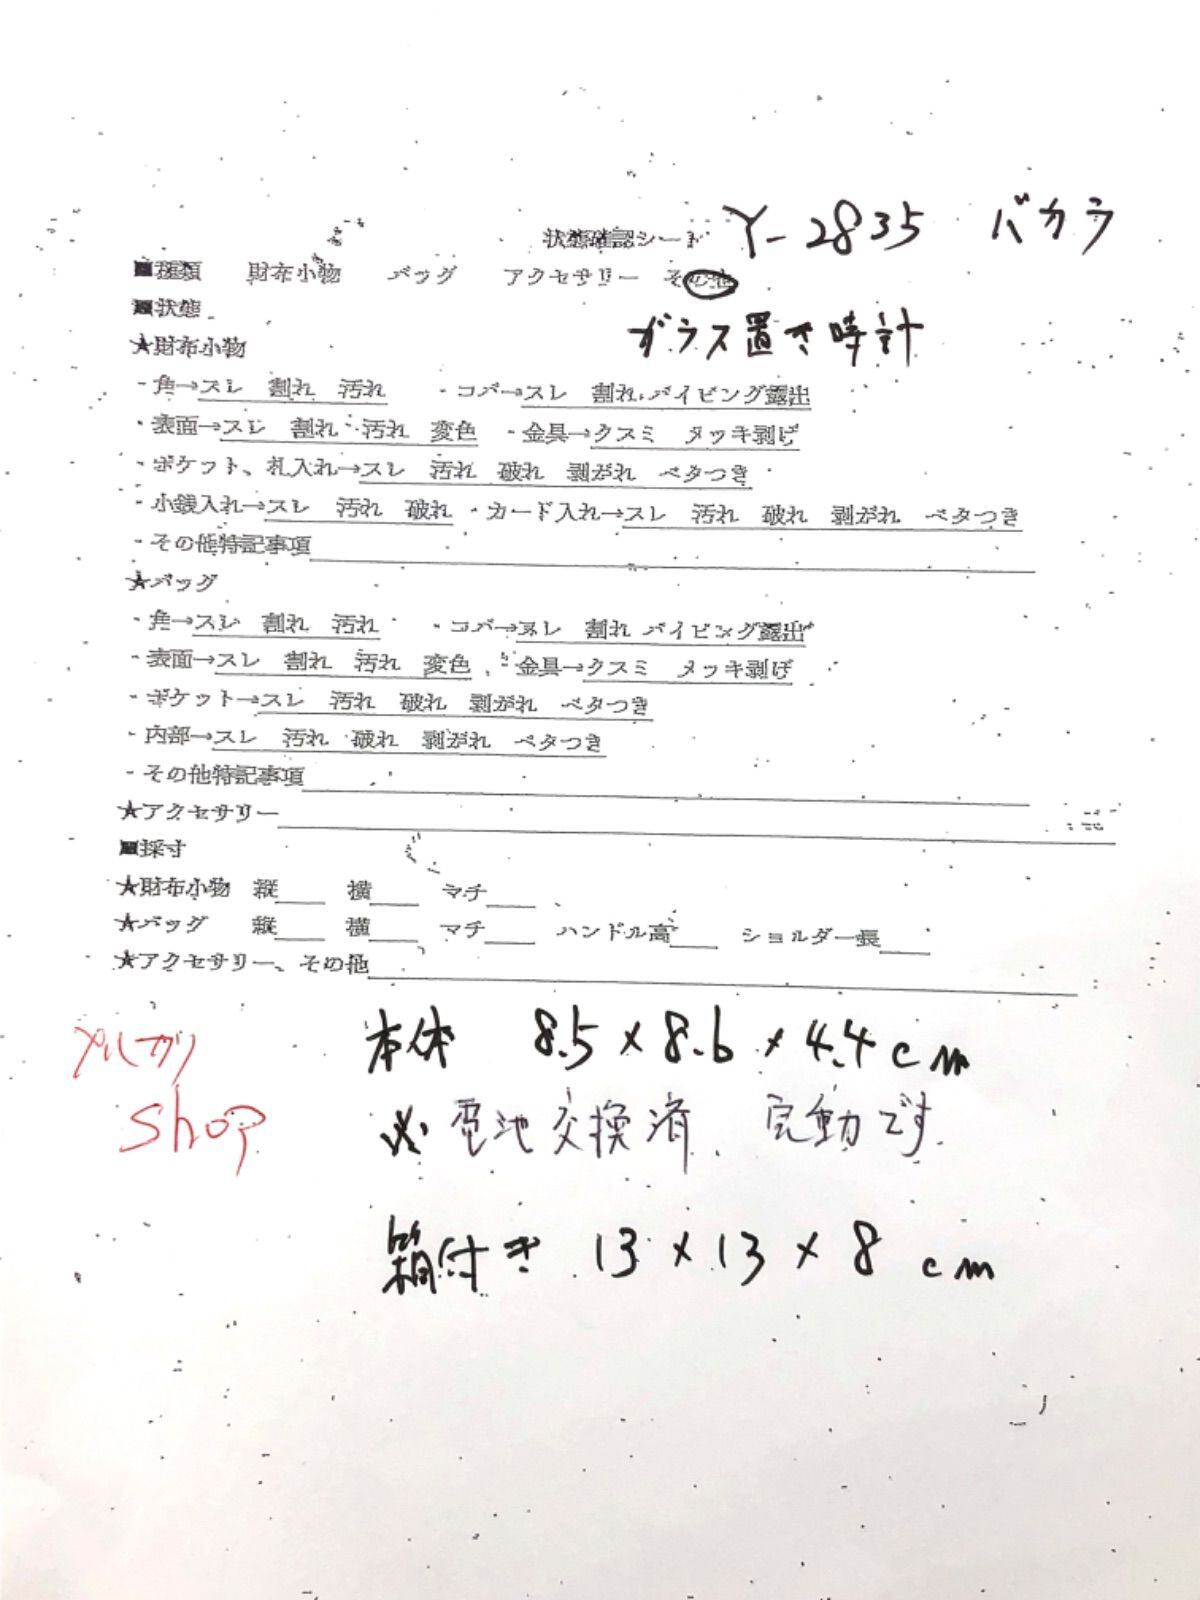 状態確認シート Y-2835 バカラ
■種類 財布小物 バッグ アクセサリー その他
■状態 ガラス置き時計
★財布小物
・角→スレ 割れ 汚れ ・コバ→スレ 割れ パイピング露出
・表面→スレ 割れ 汚れ 変色 ・金具→クスミ メッキ剥げ
・ポケット、札入れ→スレ 汚れ 破れ 剥がれ ベタつき
・小銭入れ→スレ 汚れ 破れ ・カード入れ→スレ 汚れ 破れ 剥がれ ベタつき
・その他特記事項
★バッグ
・角→スレ 割れ 汚れ ・コバ→スレ 割れ パイピング露出
・表面→スレ 割れ 汚れ 変色 ・金具→クスミ メッキ剥げ
・ポケット→スレ 汚れ 破れ 剥がれ ベタつき
・内部→スレ 汚れ 破れ 剥がれ ベタつき
・その他特記事項
★アクセサリー
■採寸
★財布小物 縦 横 マチ
★バッグ 縦 横 マチ ハンドル高 ショルダー長
★アクセサリー、その他
メルカリ 本体 8.5×8.6×4.4cm
shop ※電池交換済、完動です。
箱付き 13×13×8cm